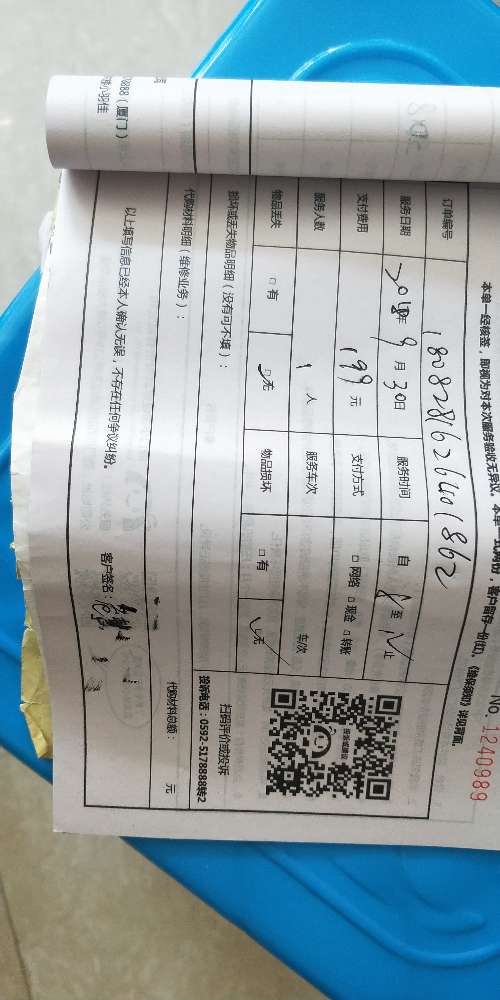 本单一经核签，即视为对本次服务验收无异议。本单一式两份，客户留存一份(红)。《维保须知》详见背面。
NO. 1240989
订单编号 1808281626401862
服务日期 2018年 9月 30日 服务时间 自 8 至 12 止
支付费用 199 元 支付方式 □ 网络 □ 现金 □ 转账
服务人数 1 人 服务车次 车/次
物品丢失 □ 有 □ 无 物品损坏 □ 有 无
损坏或丢失物品明细（没有可不填）：
扫码评价或投诉
投诉电话：0592-5178888转2
代购材料明细（维修业务）：
代购材料总额： 元
以上填写信息已经本人确认无误，不存在任何争议纠纷。
客户签名：
78888（厦门）
小羽佳